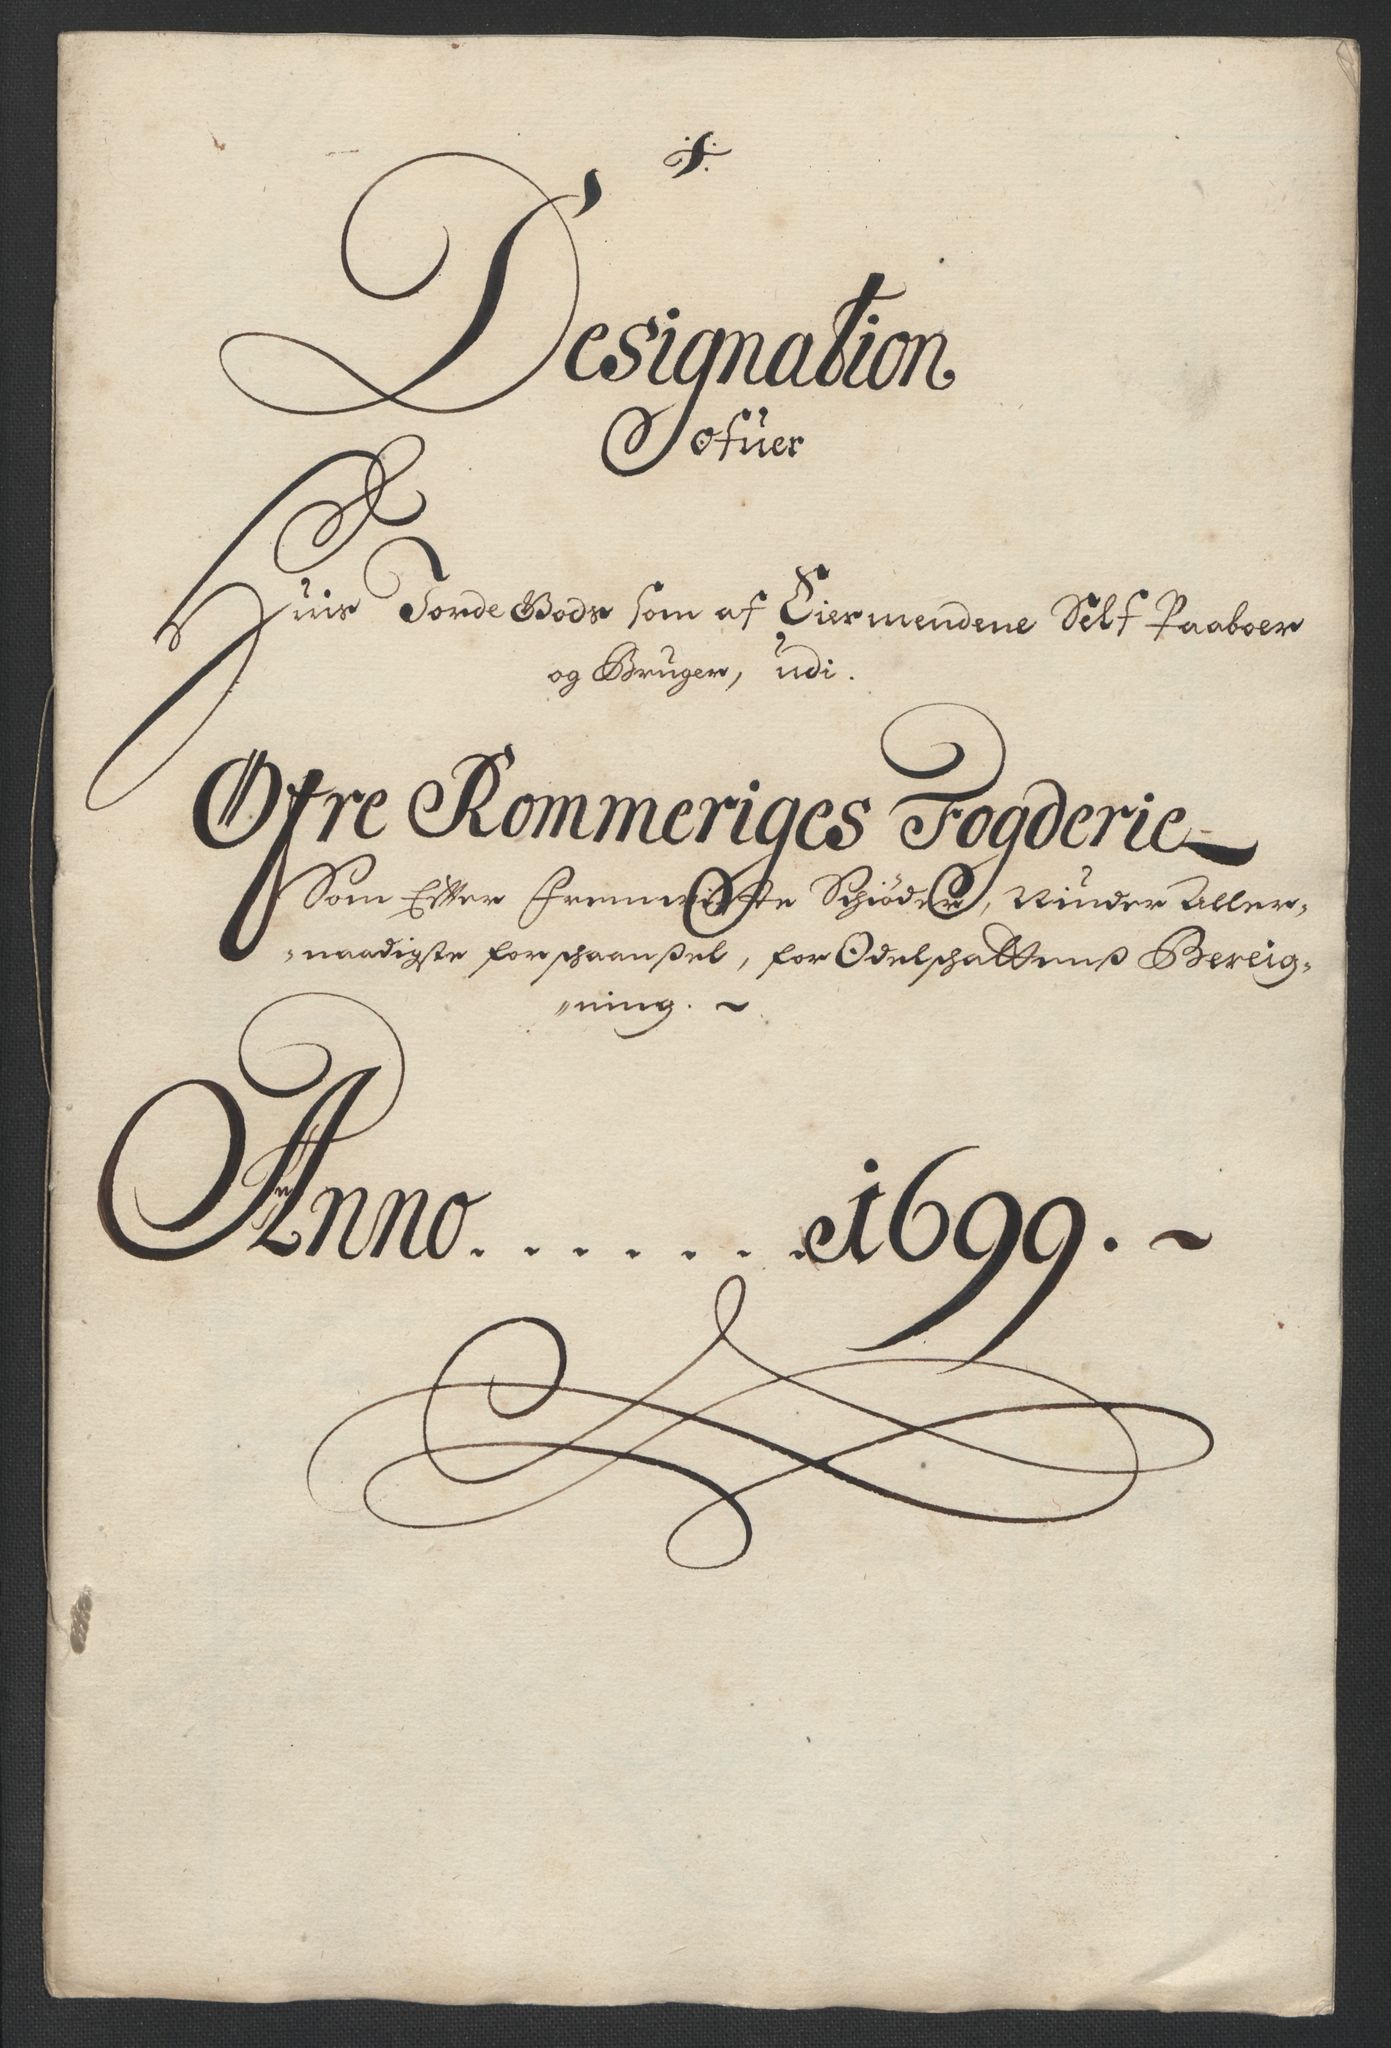 Designation
ofüer
Hüis Jorde Gods som af Eiermendene Self Paaboer
og Brüger, üdi.
Øfre Rommeriges Fogderie
Som Efter Schiøder, Nünder Aller-
naadigste forschaanßel, for Odelschattens Bereig-
ning. ~
Anno........1699. ~